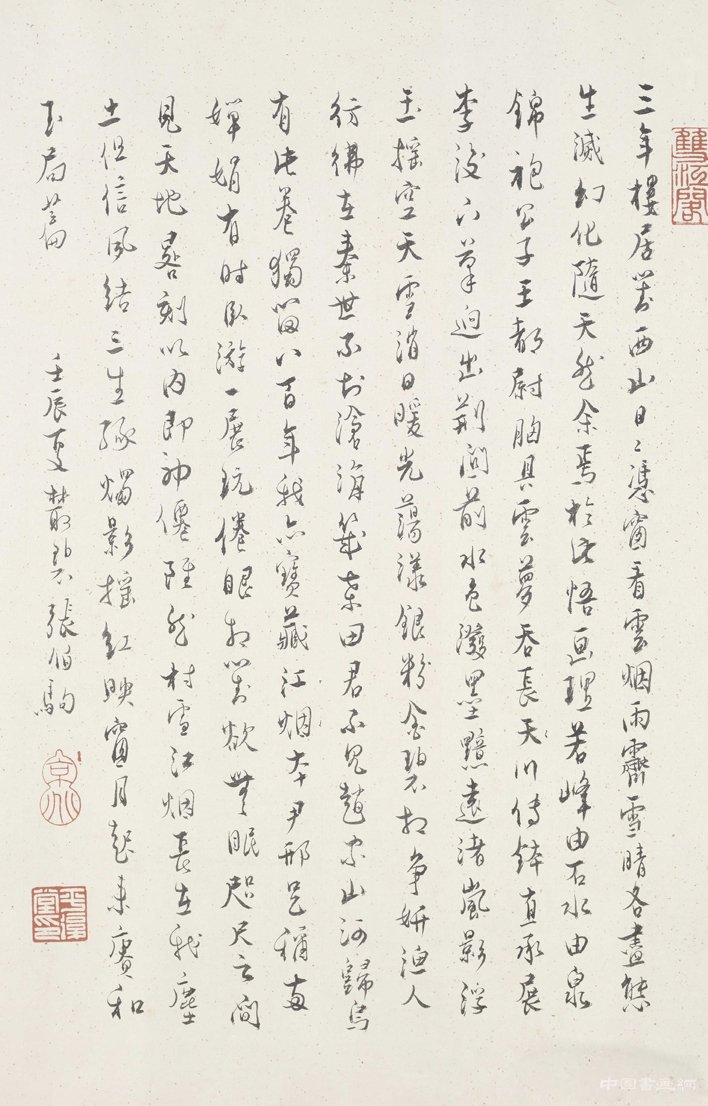 雙江閣
三年樓居對西山日日憑窗看雲烟雨霽雪晴各盡態
生滅幻化隨天然余焉於此悟画理若峰由石水由泉
錦袍公子王都尉胸具雲夢吞長天川傳鉢直承展
李後下筆迥出荊關前水色潑墨黯遠渚嵐影浮
玉摇空天雪消日暖光蕩漾銀粉金碧相争妍漁人
彷彿在秦世不知滄海幾桑田君不見趙宋山河歸烏
有此卷獨留八百年我亦寶藏江烟本尹邢足稱兩
嬋娟有時卧游一展玩倦眼相對欲無眠咫尺之間
見天地晷刻以内即神僊雖然村雪江烟長在我塵
土但信風結三生緣燭影摇紅映窗月起来賡和
玉局篇
壬辰夏叢碧張伯駒
京兆
平復堂印
中国書画網